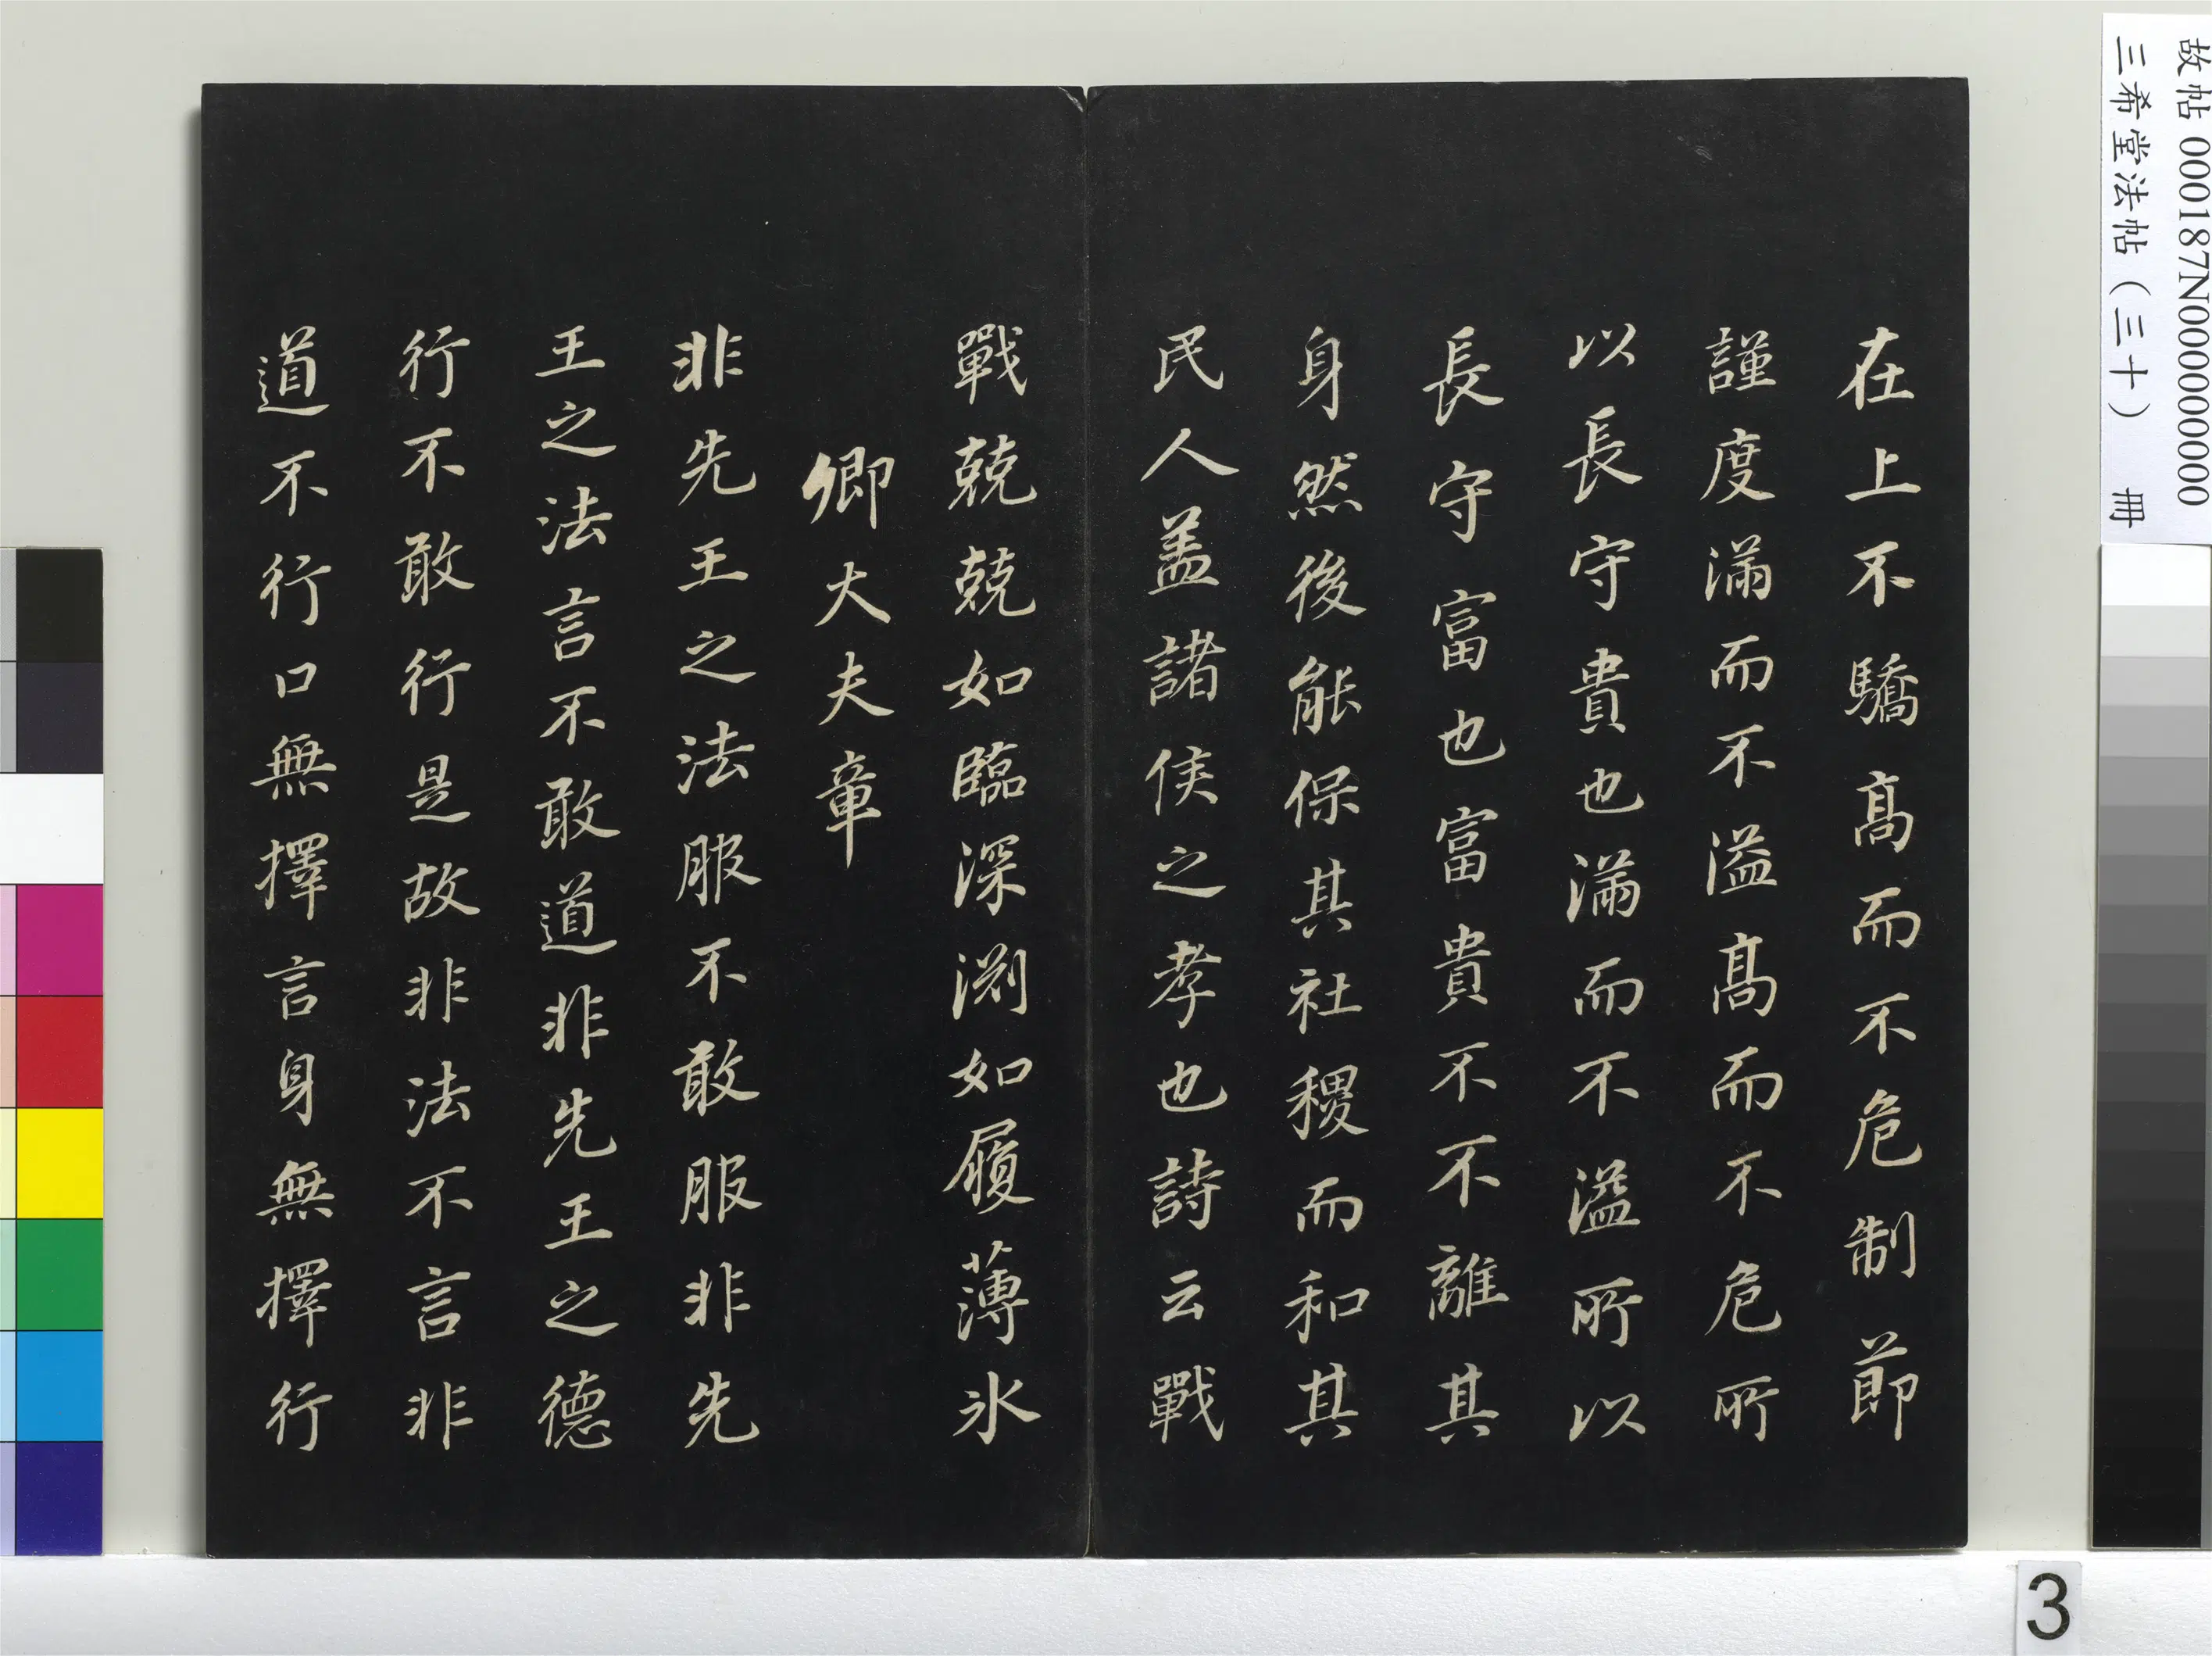 故帖 000187N000000000
三希堂法帖（三十） 冊
在上不驕髙而不危制莭
謹度滿而不溢髙而不危所
以長守貴也滿而不溢所以
長守富也富貴不不離其
身然後能保其社稷而和其
民人盖諸侯之孝也詩云戰
戰兢兢如臨深渊如履薄氷
卿大夫章
非先王之法服不敢服非先
王之法言不敢道非先王之德
行不敢行是故非法不言非
道不行口無擇言身無擇行
3